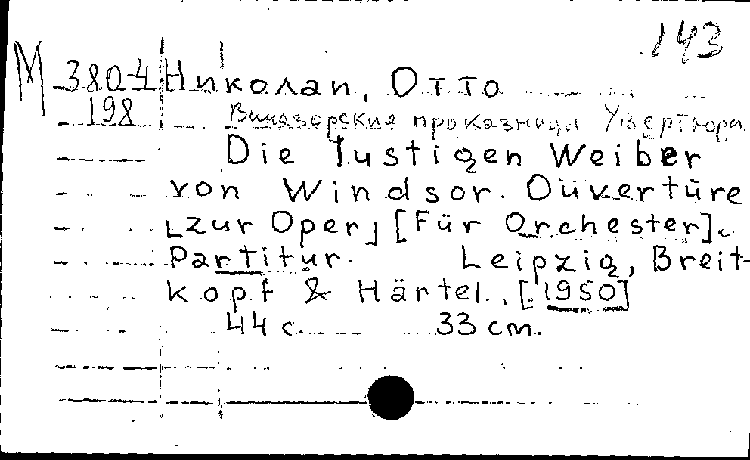 143
М 380-4 Николаи, Отто
198 Виндзорские проказницы Увертюра
Die lustigen Weiber
von Windsor. Ouvertüre
[zur Oper] [Für Orchester].
Partitur. Leipzig, Breit-
kopf & Härtel, [1950]
44 с. 33 cm.